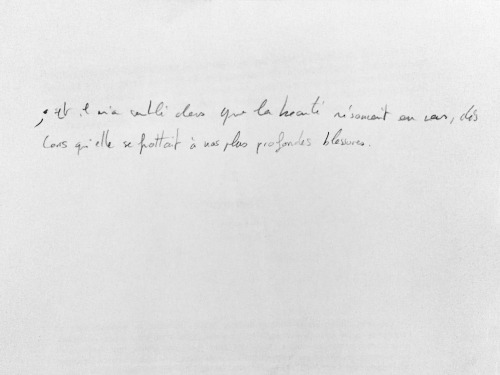 ; et il m'a semblé alors que la beauté résonnait en nous, dès
lors qu'elle se frottait à nos plus profondes blessures.